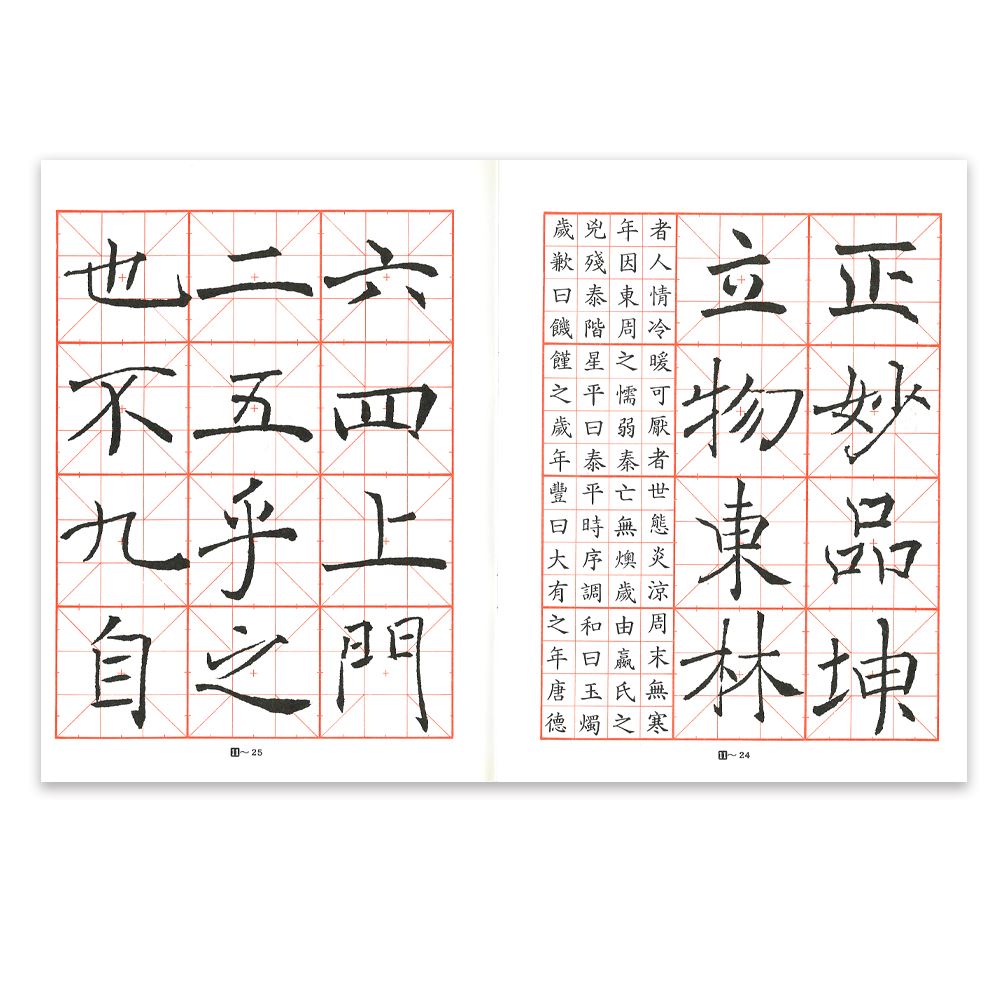 正妙品坤
立物東林
者人情冷暖可厭者世態炎涼周末無寒
年因東周之懦弱秦亡無燠歲由嬴氏之
兇殘泰階星平曰泰平時序調和曰玉燭
歲歉曰饑饉之歲年豐曰大有之年唐德
11～24
六四上門
二五乎之
也不九自
11～25